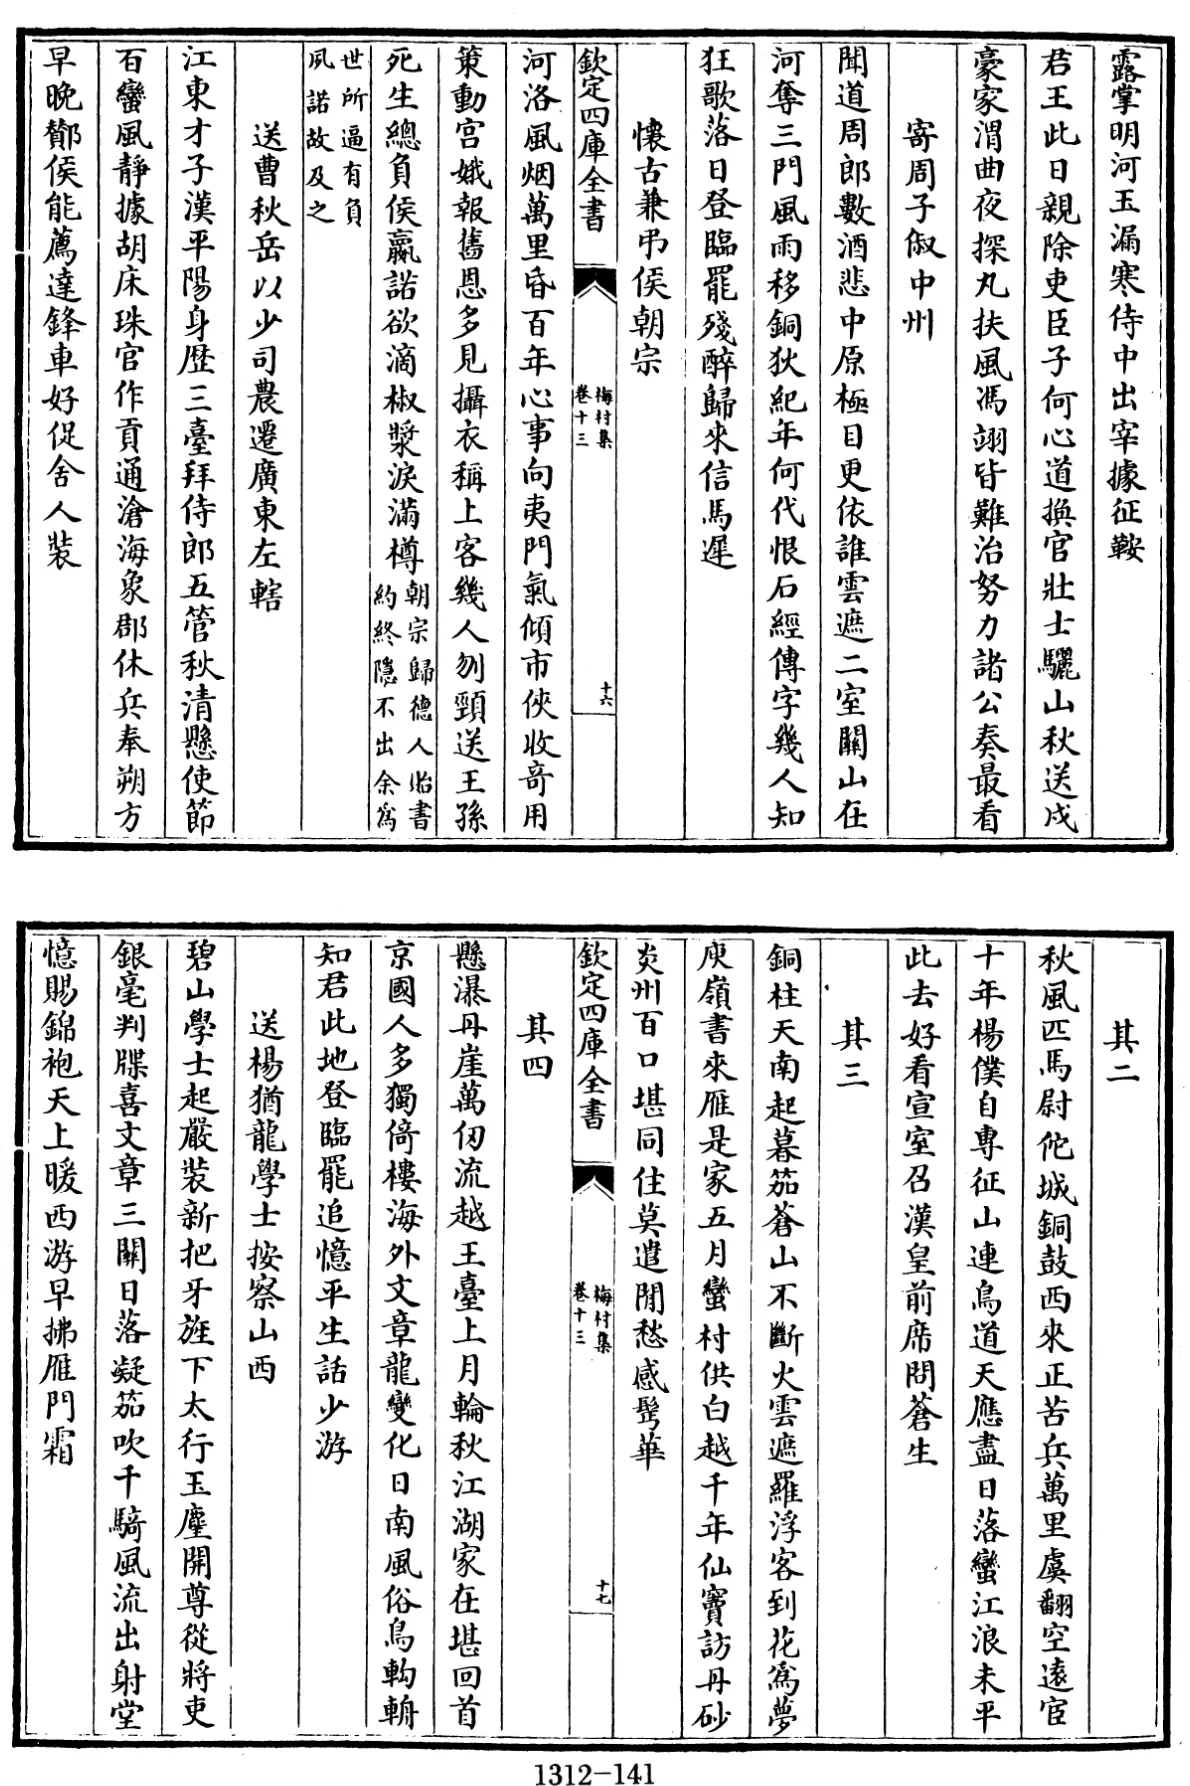 露掌明河玉漏寒侍中出宰據征鞍
君王此日親除吏臣子何心道換官壯士驪山秋送戍
豪家渭曲夜探丸扶風馮翊皆難治努力諸公奏最看
寄周子俶中州
聞道周郎數酒悲中原極目更依誰雲遮二室關山在
河奪三門風雨移銅狄紀年何代恨石經傳字幾人知
狂歌落日登臨罷殘醉歸來信馬遲
懷古兼弔侯朝宗
欽定四庫全書
梅村集
卷十三
十六
河洛風烟萬里昏百年心事向夷門氣傾市俠收竒用
策動宫娥報舊恩多見攝衣稱上客幾人刎頸送王孫
死生總負侯嬴諾欲滴椒漿淚滿樽
朝宗歸德人貽書
約終隱不出余為
世所逼有負
夙諾故及之
送曹秋岳以少司農遷廣東左轄
江東才子漢平陽身歴三臺拜侍郎五管秋清懸使節
百蠻風靜據胡床珠官作貢通滄海象郡休兵奉朔方
早晩酇侯能薦達鋒車好促舍人裝
其二
秋風匹馬尉佗城銅鼓西來正苦兵萬里虞翻空遠宦
十年楊僕自專征山連鳥道天應盡日落蠻江浪未平
此去好看宣室召漢皇前席問蒼生
其三
銅柱天南起暮笳蒼山不斷火雲遮羅浮客到花為夢
庾嶺書來雁是家五月蠻村供白越千年仙竇訪丹砂
炎州百口堪同住莫遣閒愁感髩華
欽定四庫全書
梅村集
卷十三
十七
其四
懸瀑丹崖萬仞流越王臺上月輪秋江湖家在堪回首
京國人多獨倚樓海外文章龍變化日南風俗鳥軥輈
知君此地登臨罷追憶平生話少游
送楊猶龍學士按察山西
碧山學士起嚴裝新把牙旌下太行玉麈開尊從將吏
銀毫判牒喜文章三關日落凝笳吹千騎風流出射堂
憶賜錦袍天上暖西游早拂雁門霜
1312-141